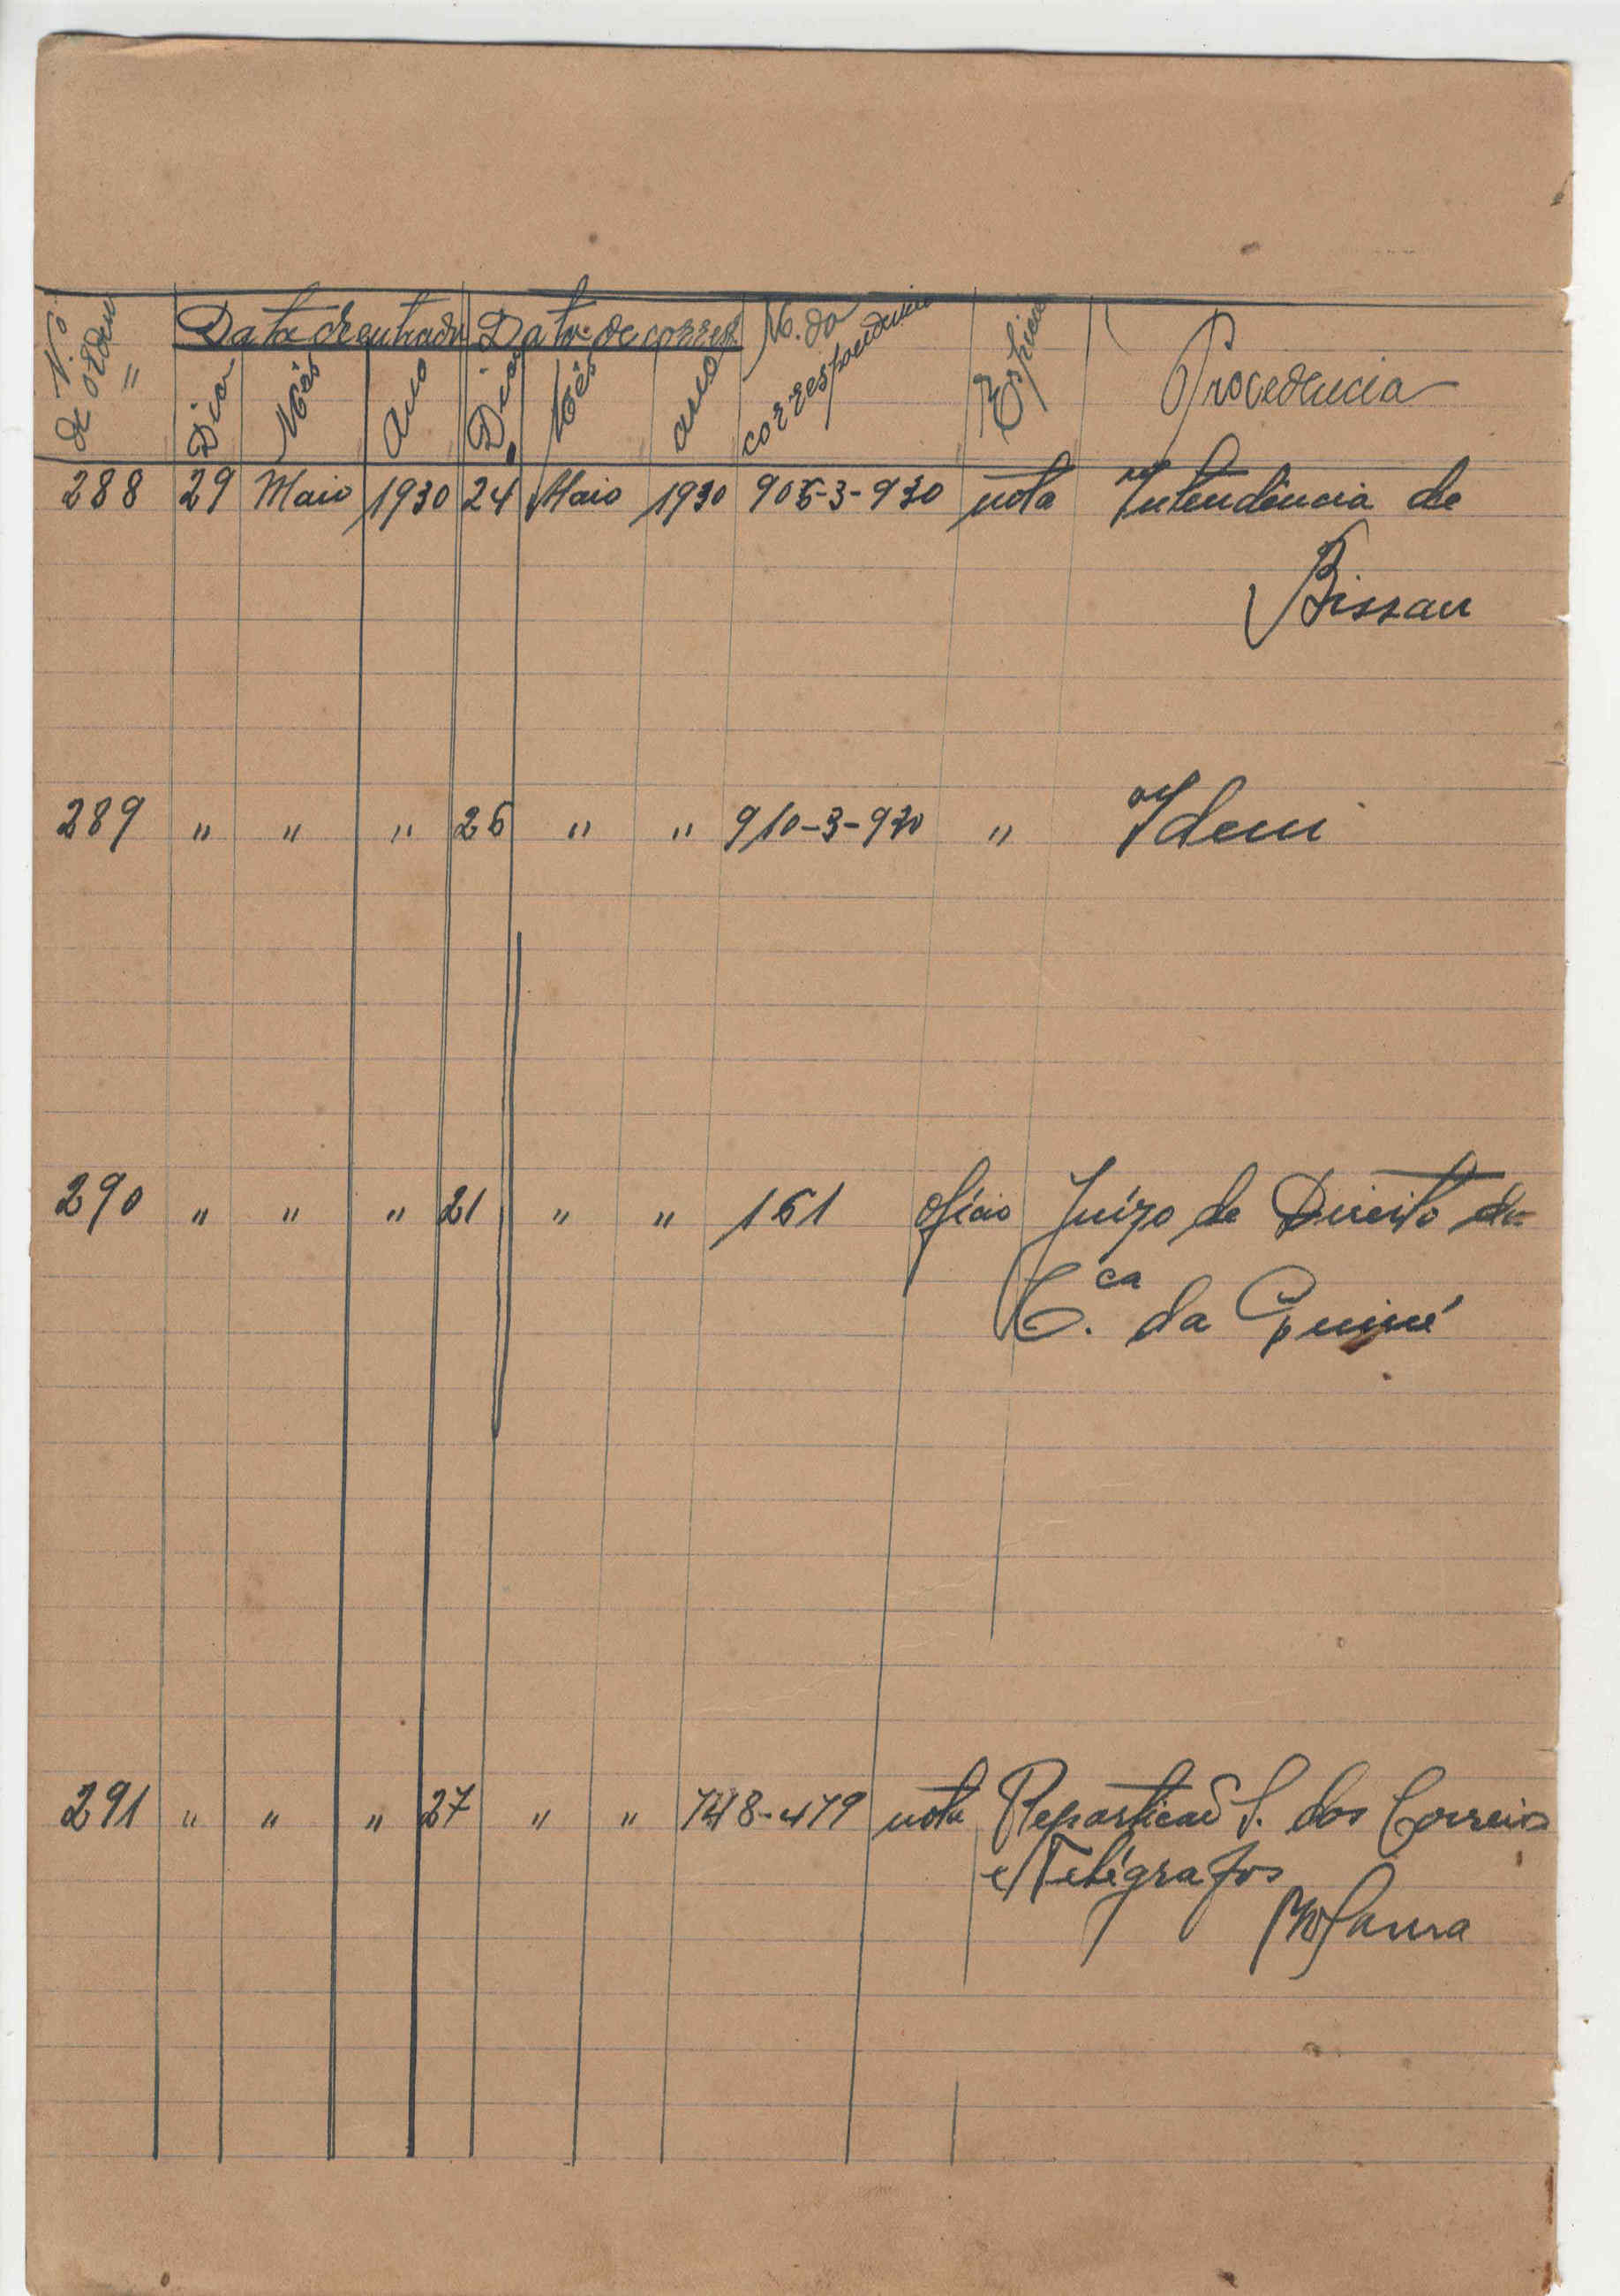 N.º de ordem
Data de entrada Data de corresp
N. da correspondencia
Espécie
Procedencia
Dia Mês Ano Dia Mês Ano
288 29 Maio 1930 24 Maio 1930 905-3-930 nota Intendência de
Bissau
289 " " " 26 " " 910-3-930 " Idem
290 " " " 21 " " 161 ofício Juízo de Direito da
C.ca da Guiné
291 " " " 27 " " 748-479 nota Reparticão S. dos Correios
e Telégrafos
Bolama